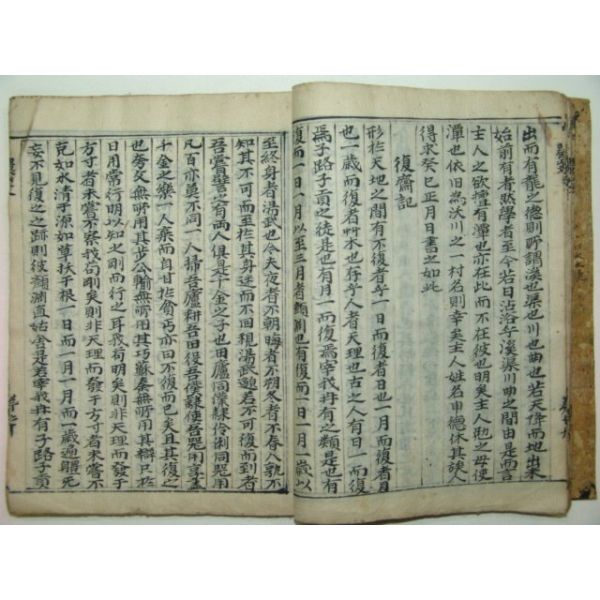 出而有龍之德則所謂溪也渠也川也曲也若天降而地出來
始前有者然學者至今若日沾浴乎溪渠川曲之間由是而言
主人之欲擅有潭也亦在此而不在彼也明矣主人起之毋使
潭也依旧為沃川之一村名則幸矣主人姓名申德休其談人
得求癸巳正月日書之如此
復齋記
形於天地之間有不復者乎一日而復者日也一月而復者月
也一歲而復者艸木也存乎人者天理也古之人有日一而復
焉子路子貢之徒是也有月一而復焉宰我冉有之類是也有
復而一日一月以至三月者顏淵也有復而一日一月一歲以
至終身者湯武也今夫夜者不朝晦者不朔冬者不春人孰不
知其不可而至於其身迷而不回視湯武邈若不可復而到者
吾嘗譬之有兩人俱千金之子也田廬同僕隸伶俐同器用
凡百亦莫不同一人掃吾廬耕吾田役吾僕隸使吾器用享盡
千金之樂一人棄而自甘於貧丐亦曰不復而已矣且其復之
也旁及無所用其步公輸無所用其巧蘇秦無所用其辯只於
日用常行明以知之剛而行之耳我苟明矣則非天理而發于
方寸者未嘗不察我苟剛矣則非天理而發于方寸者未嘗不
克如水清于源如草扶于根一日而一月一月而一歲邇躍死
妄不見復之之跡則彼顏淵直姑舍是若宰我冉有子路子貢